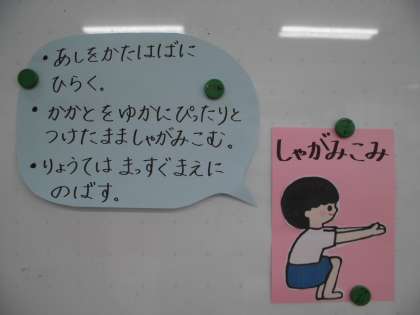 ・あしをかたはばに
ひらく。
・かかとをゆかにぴったりと
つけたまましゃがみこむ。
・りょうてはまっすぐまえに
のばす。
しゃがみこみ